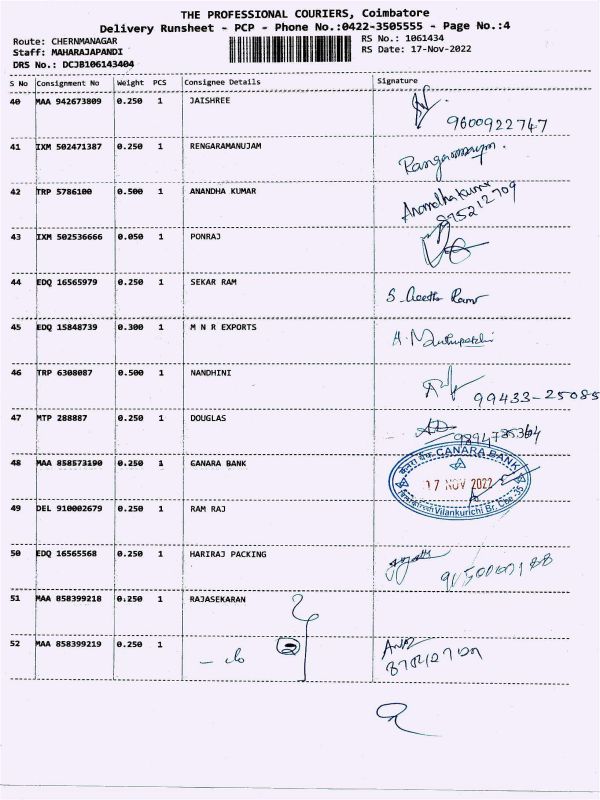 THE PROFESSIONAL COURIERS, Coimbatore
Delivery Runsheet - PCP - Phone No.:0422-3505555 - Page No.:4
Route: CHERNMANAGAR RS No.: 1061434
Staff: MAHARAJAPANDI RS Date: 17-Nov-2022
DRS No.: DCJB106143404
S No Consignment No Weight PCS Consignee Details Signature
40 MAA 942673809 0.250 1 JAISHREE
9600922747
41 IXM 502471387 0.250 1 RENGARAMANUJAM
42 TRP 5786100 0.500 1 ANANDHA KUMAR Anandhakumar
43 IXM 502536666 0.050 1 PONRAJ
44 EDQ 16565979 0.250 1 SEKAR RAM
S. Geetha Ram
45 EDQ 15848739 0.300 1 M N R EXPORTS
46 TRP 6308087 0.500 1 NANDHINI
99433-25085
47 MTP 288887 0.250 1 DOUGLAS
CANARA BANK
48 MAA 858573190 0.250 1 GANARA BANK
17 NOV 2022
Vilankurichi Br. Cbe-35
49 DEL 910002679 0.250 1 RAM RAJ
50 EDQ 16565568 0.250 1 HARIRAJ PACKING
51 MAA 858399218 0.250 1 RAJASEKARAN
52 MAA 858399219 0.250 1 - do 2